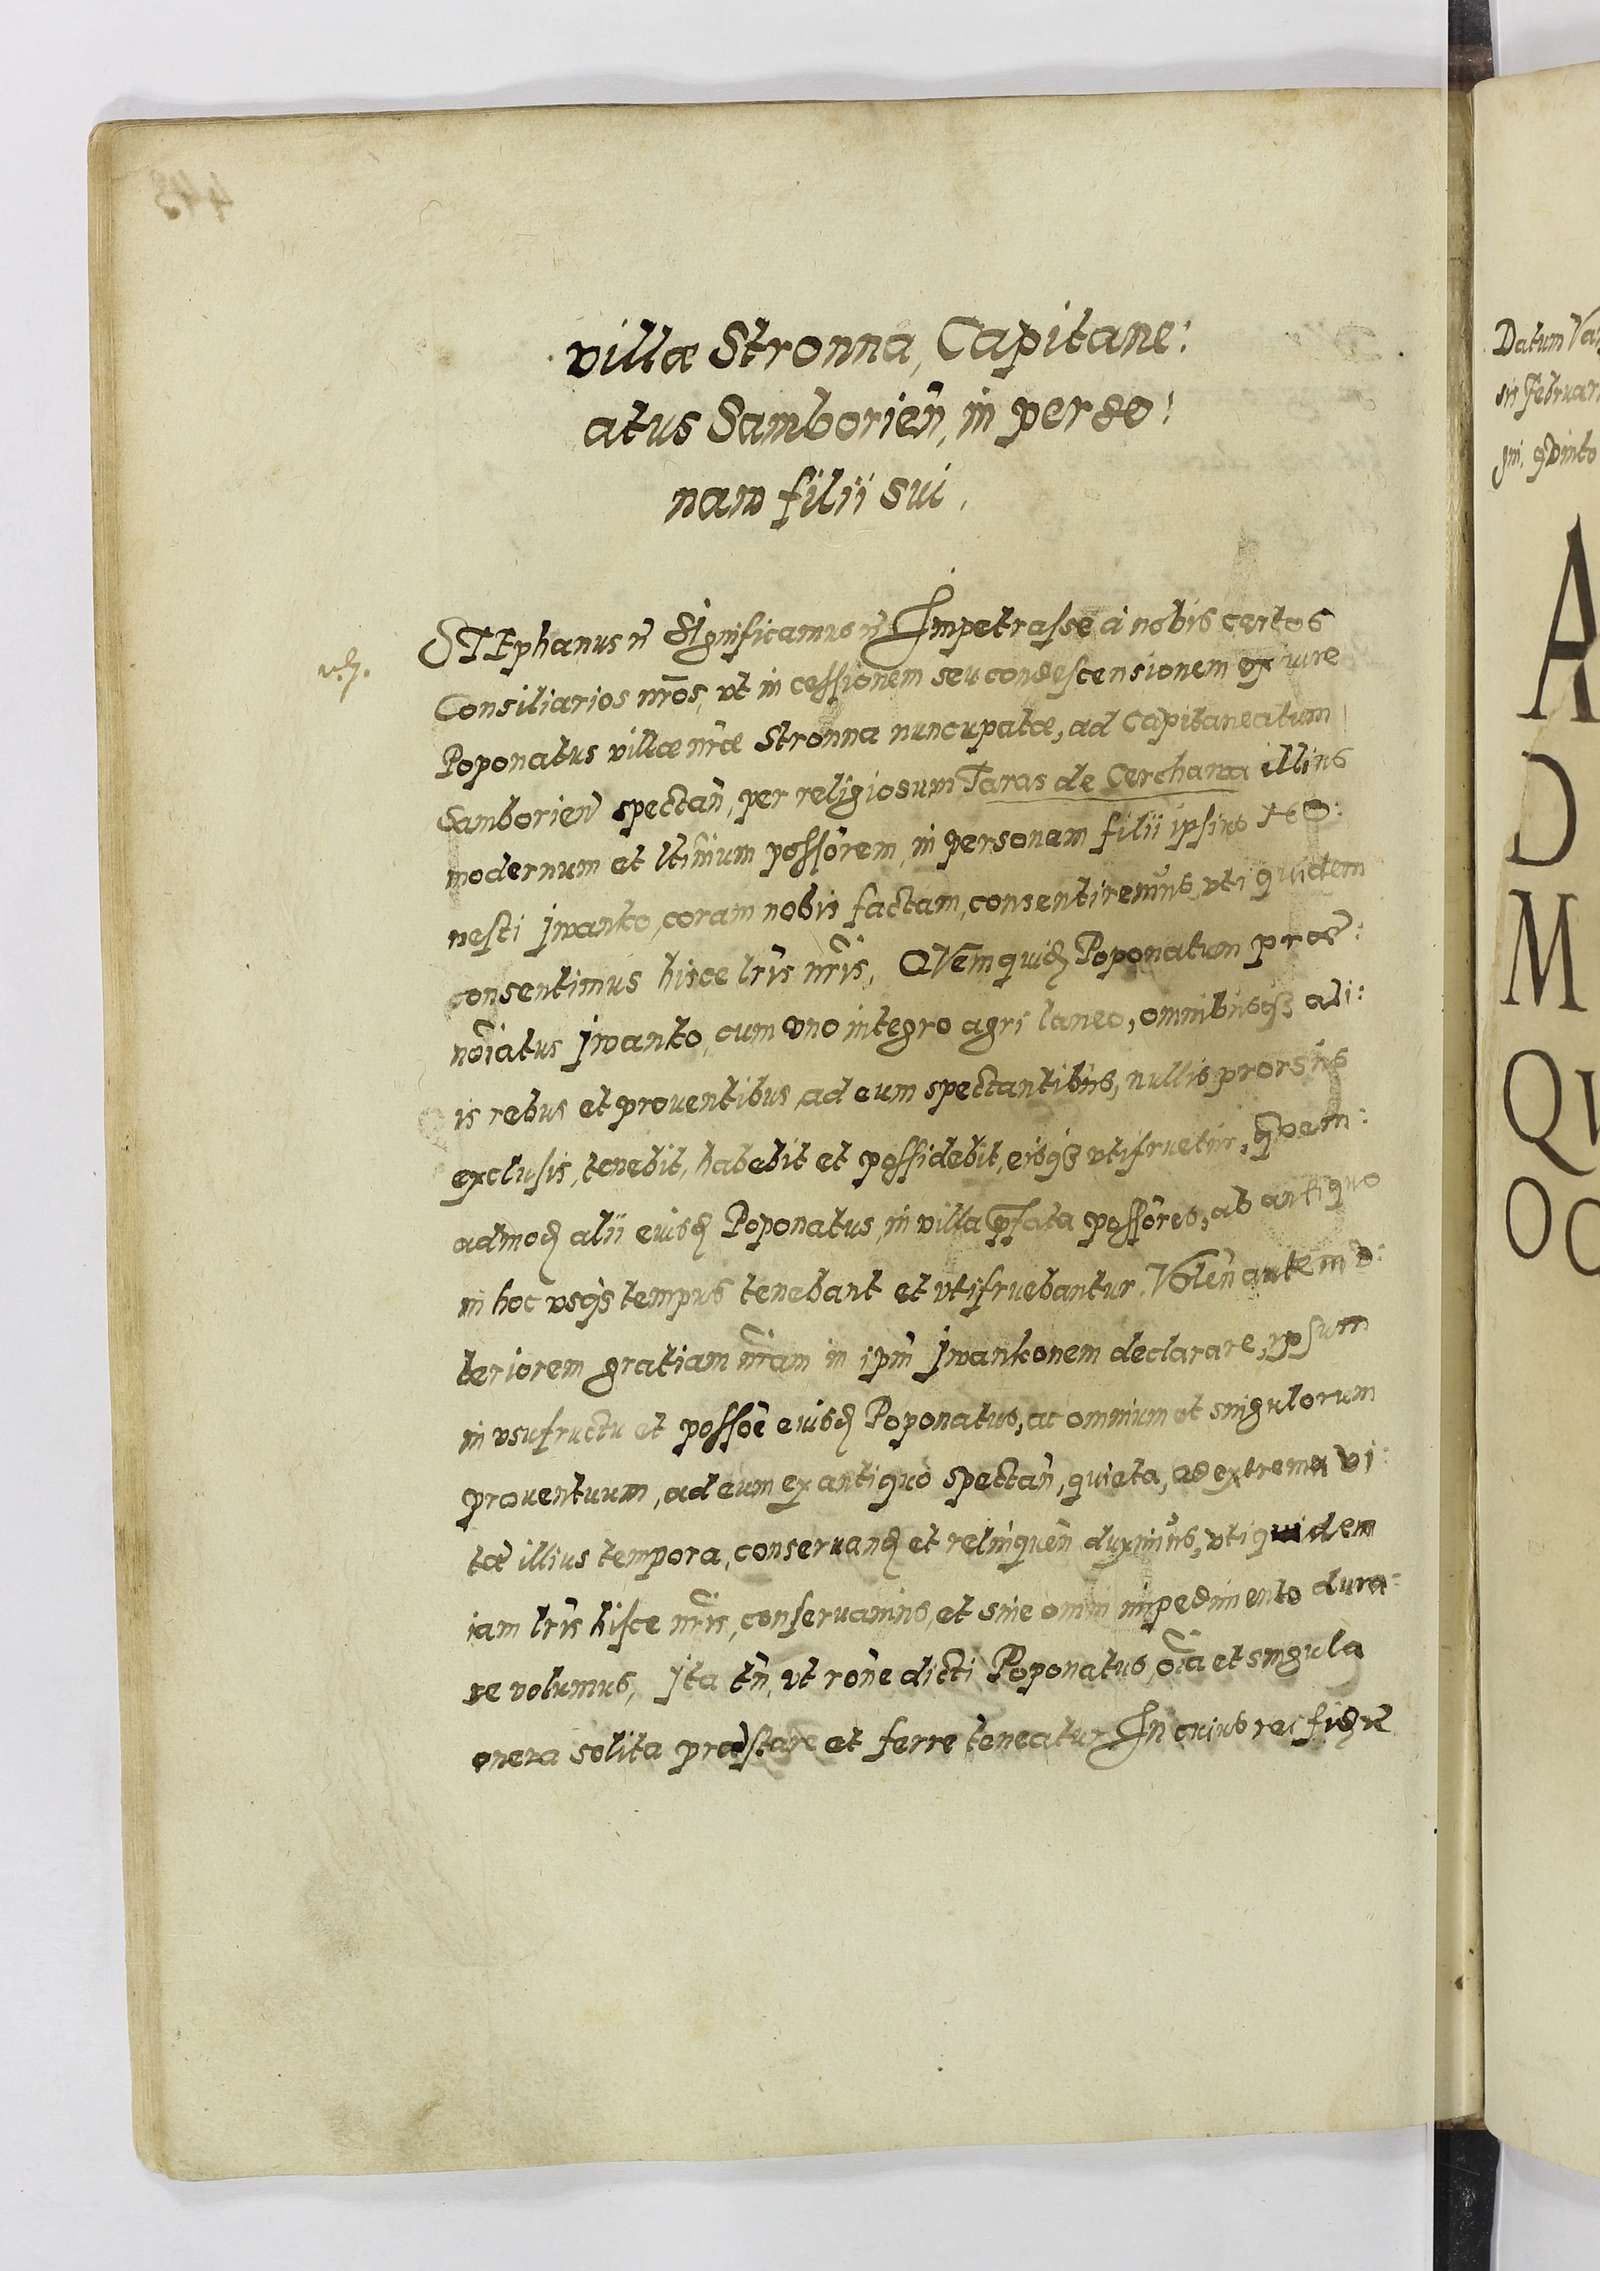 villæ Stronna, Capitane:
atus Samborień, in perso:
nam filii sui.
STEphanus &c Significamus &c Impetrasse a nobis certos
Consiliarios nr̃os, vt in cessionem seu condescensionem ex iure
Poponatus villæ nr̃æ Stronna nuncupatæ, ad Capitaneatum
Samborień spectań, per religiosum Taras de Cerchawa illius
modernum et ltĩmum possõrem, in personam filii ipsius
nesti Jwanko, coram nobis factam, consentiremus, vti quidem
consentimus hisce lr̃is nr̃is. QVemquid Poponatum præ:
nõiatus Jwanko, cum vno integro agri laneo, omnibusq3 ali:
is rebus et prouentibus ad eum spectantibus, nullis prorsus
exclusis, tenebit, habebit et possidebit, eisq3 vtifruetur, quem:
admod alii eiusd Poponatus, in villa p̃fata possõres, ab antiquo
in hoc vsq3 tempus tenebant et vtifruebantur. Voleñ autem v:
teriorem gratiam nr̃am in ipm̃ Jwankonem declarare, ipsum
in vsufructu et possõe eiusd Poponatus, ac omnium et singulorum
prouentuum, ad eum ex antiquo spectań, quieta, ad extrema vi:
tæ illius tempora, conseruand et relinqueñ duximus, vti quidem
iam lr̃is hisce nr̃is, conseruamus, et sine omni impedimento dura:
re volumus, Jta tñ, vt rõne dicti Poponatus, oĩa et singula
onera solita præstare et ferre teneatur. In cuius rei fidem
Datum Var
sis Februar
gni. q̃dinto
A
D
M
QV
OC